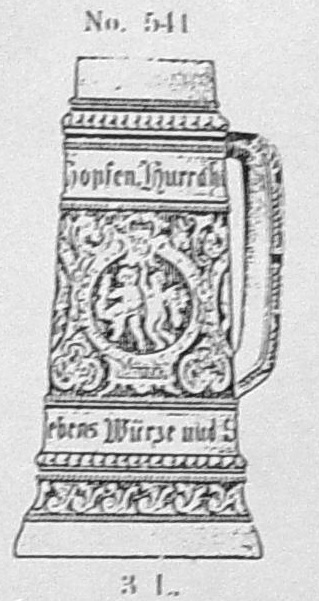 No. 541
Hopfen, Hurrah
ebens Würze und S
3 L.